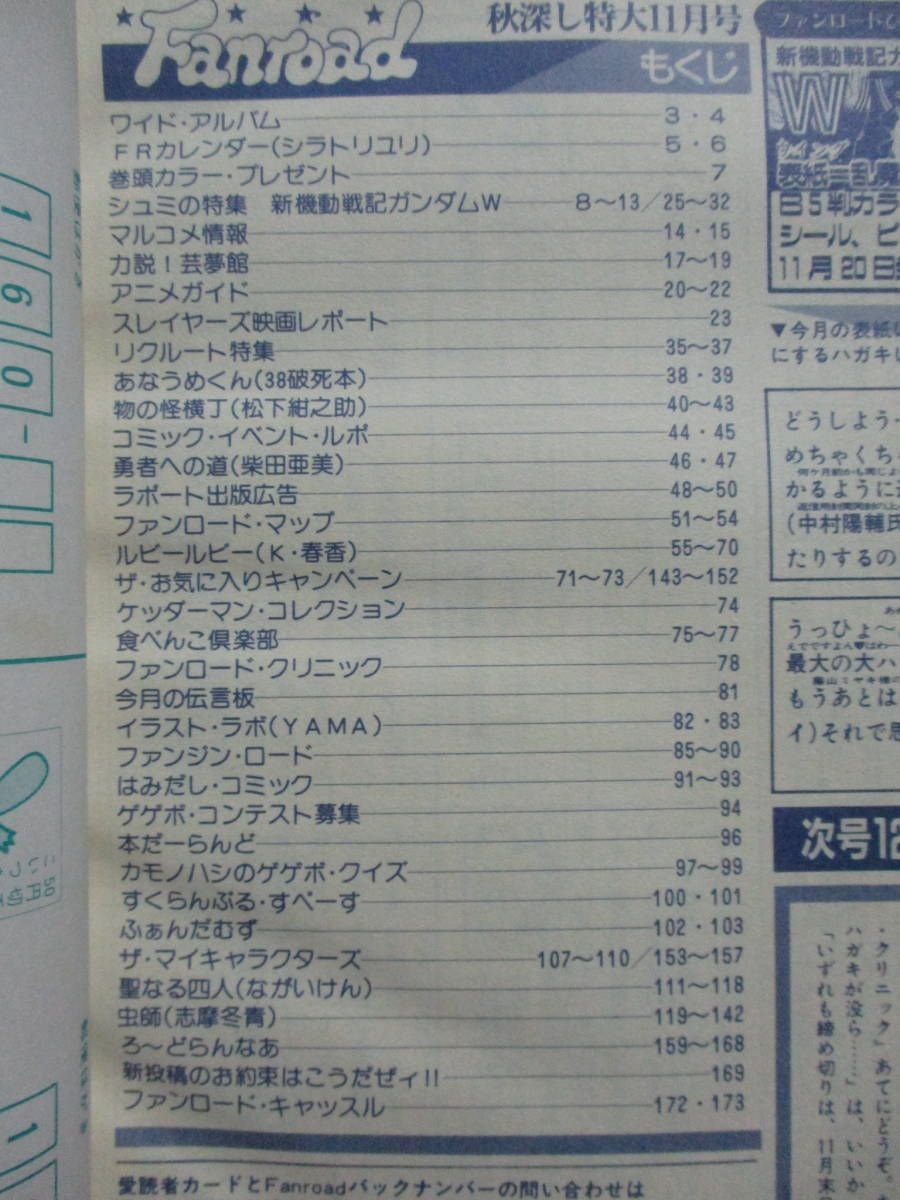 Fanroad
秋深し特大11月号
もくじ
ワイド・アルバム 3・4
FRカレンダー(シラトリユリ) 5・6
巻頭カラー・プレゼント 7
シュミの特集 新機動戦記ガンダムW 8〜13/25〜32
マルコメ情報 14・15
力説!芸夢館 17〜19
アニメガイド 20〜22
スレイヤーズ映画レポート 23
リクルート特集 35〜37
あなうめくん(38破死本) 38・39
物の怪横丁(松下紺之助) 40〜43
コミック・イベント・ルポ 44・45
勇者への道(柴田亜美) 46・47
ラポート出版広告 48〜50
ファンロード・マップ 51〜54
ルビールビー(K・春香) 55〜70
ザ・お気に入りキャンペーン 71〜73/143〜152
ケッダーマン・コレクション 74
食べんこ倶楽部 75〜77
ファンロード・クリニック 78
今月の伝言板 81
イラスト・ラボ(YAMA) 82・83
ファンジン・ロード 85〜90
はみだし・コミック 91〜93
ゲゲボ・コンテスト募集 94
本だーらんど 96
カモノハシのゲゲボ・クイズ 97〜99
すくらんぶる・すぺーす 100・101
ふぁんだむず 102・103
ザ・マイキャラクターズ 107〜110/153〜157
聖なる四人(ながいけん) 111〜118
虫師(志摩冬青) 119〜142
ろ〜どらんなあ 159〜168
新投稿のお約束はこうだぜィ!! 169
ファンロード・キャッスル 172・173
愛読者カードとFanroadバックナンバーの問い合わせは
ファンロード
新機動戦記ガ
W
表紙=乱魔
B5判カラ
シール、ピ
11月20日
▼今月の表紙
にするハガキ
どうしよう
めちゃくち
かるように
(中村陽輔氏
たりするの
うっひょ〜
最大の大ハ
もうあとは
イ)それで思
次号12
・クリニック」あてにどうぞ。
ハガキが没ら……」は、いいか
「いずれも締め切りは、11月末
160-
1
50円切